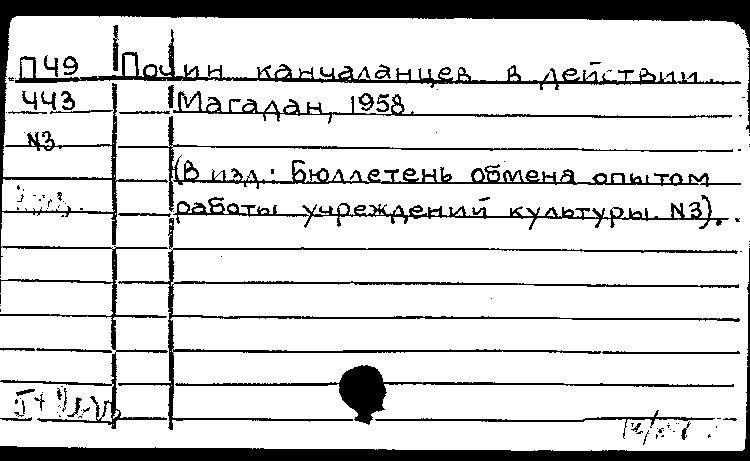 П49 Почин канчаланцев в действии.
443 Магадан, 1958.
N3.
(В изд.: Бюллетень обмена опытом
работы учреждений культуры. N3).